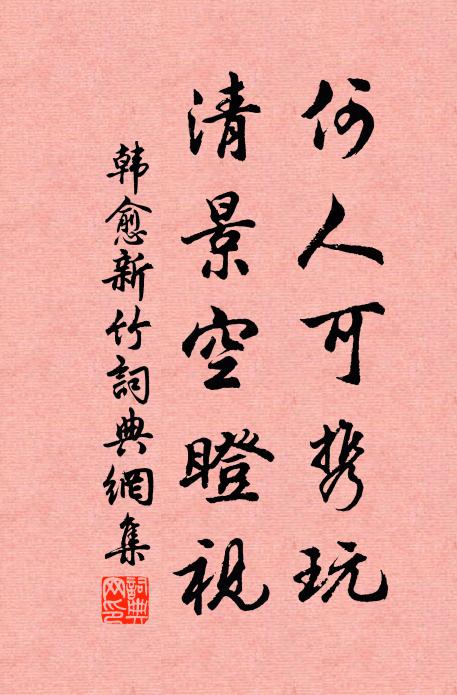 何人可携玩
清景空瞪視
韓愈新竹詞典網集
詞典网印